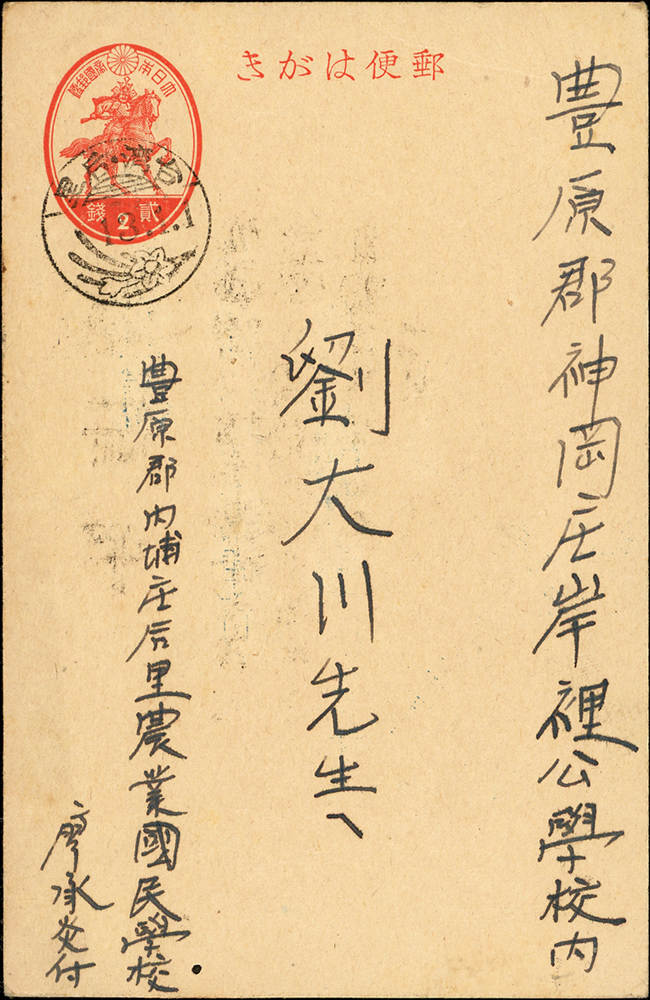 郵便はがき
大日本帝國郵便
貳錢
2
豊原郡神岡庄岸裡公學校内
劉大川先生へ
豊原郡内埔庄后里農業國民學校
廖承炎付